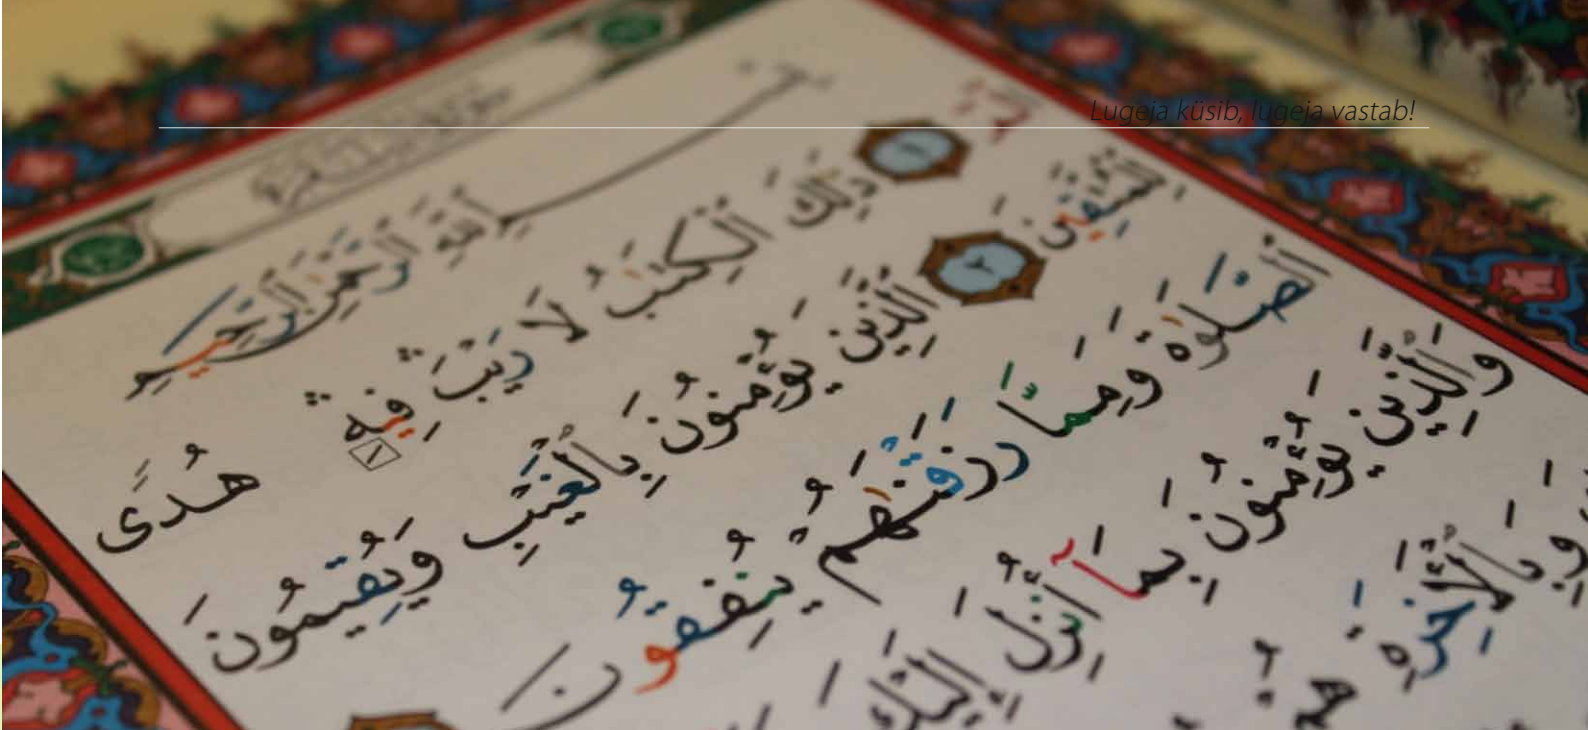 Lugeja küsib, lugeja vastab!
بِسْمِ ٱللَّهِ ٱلرَّحْمَٰنِ ٱلرَّحِيمِ
الٓمٓ ١ ذَٰلِكَ ٱلْكِتَٰبُ لَا رَيْبَ ۛ فِيهِ ۛ هُدًى
لِّلْمُتَّقِينَ ٢ ٱلَّذِينَ يُؤْمِنُونَ بِٱلْغَيْبِ وَيُقِيمُونَ
ٱلصَّلَوٰةَ وَمِمَّا رَزَقْنَٰهُمْ يُنفِقُونَ
وَٱلَّذِينَ يُؤْمِنُونَ بِمَآ أُنزِلَ إِلَيْكَ
وَبِٱلْأَخِرَةِ